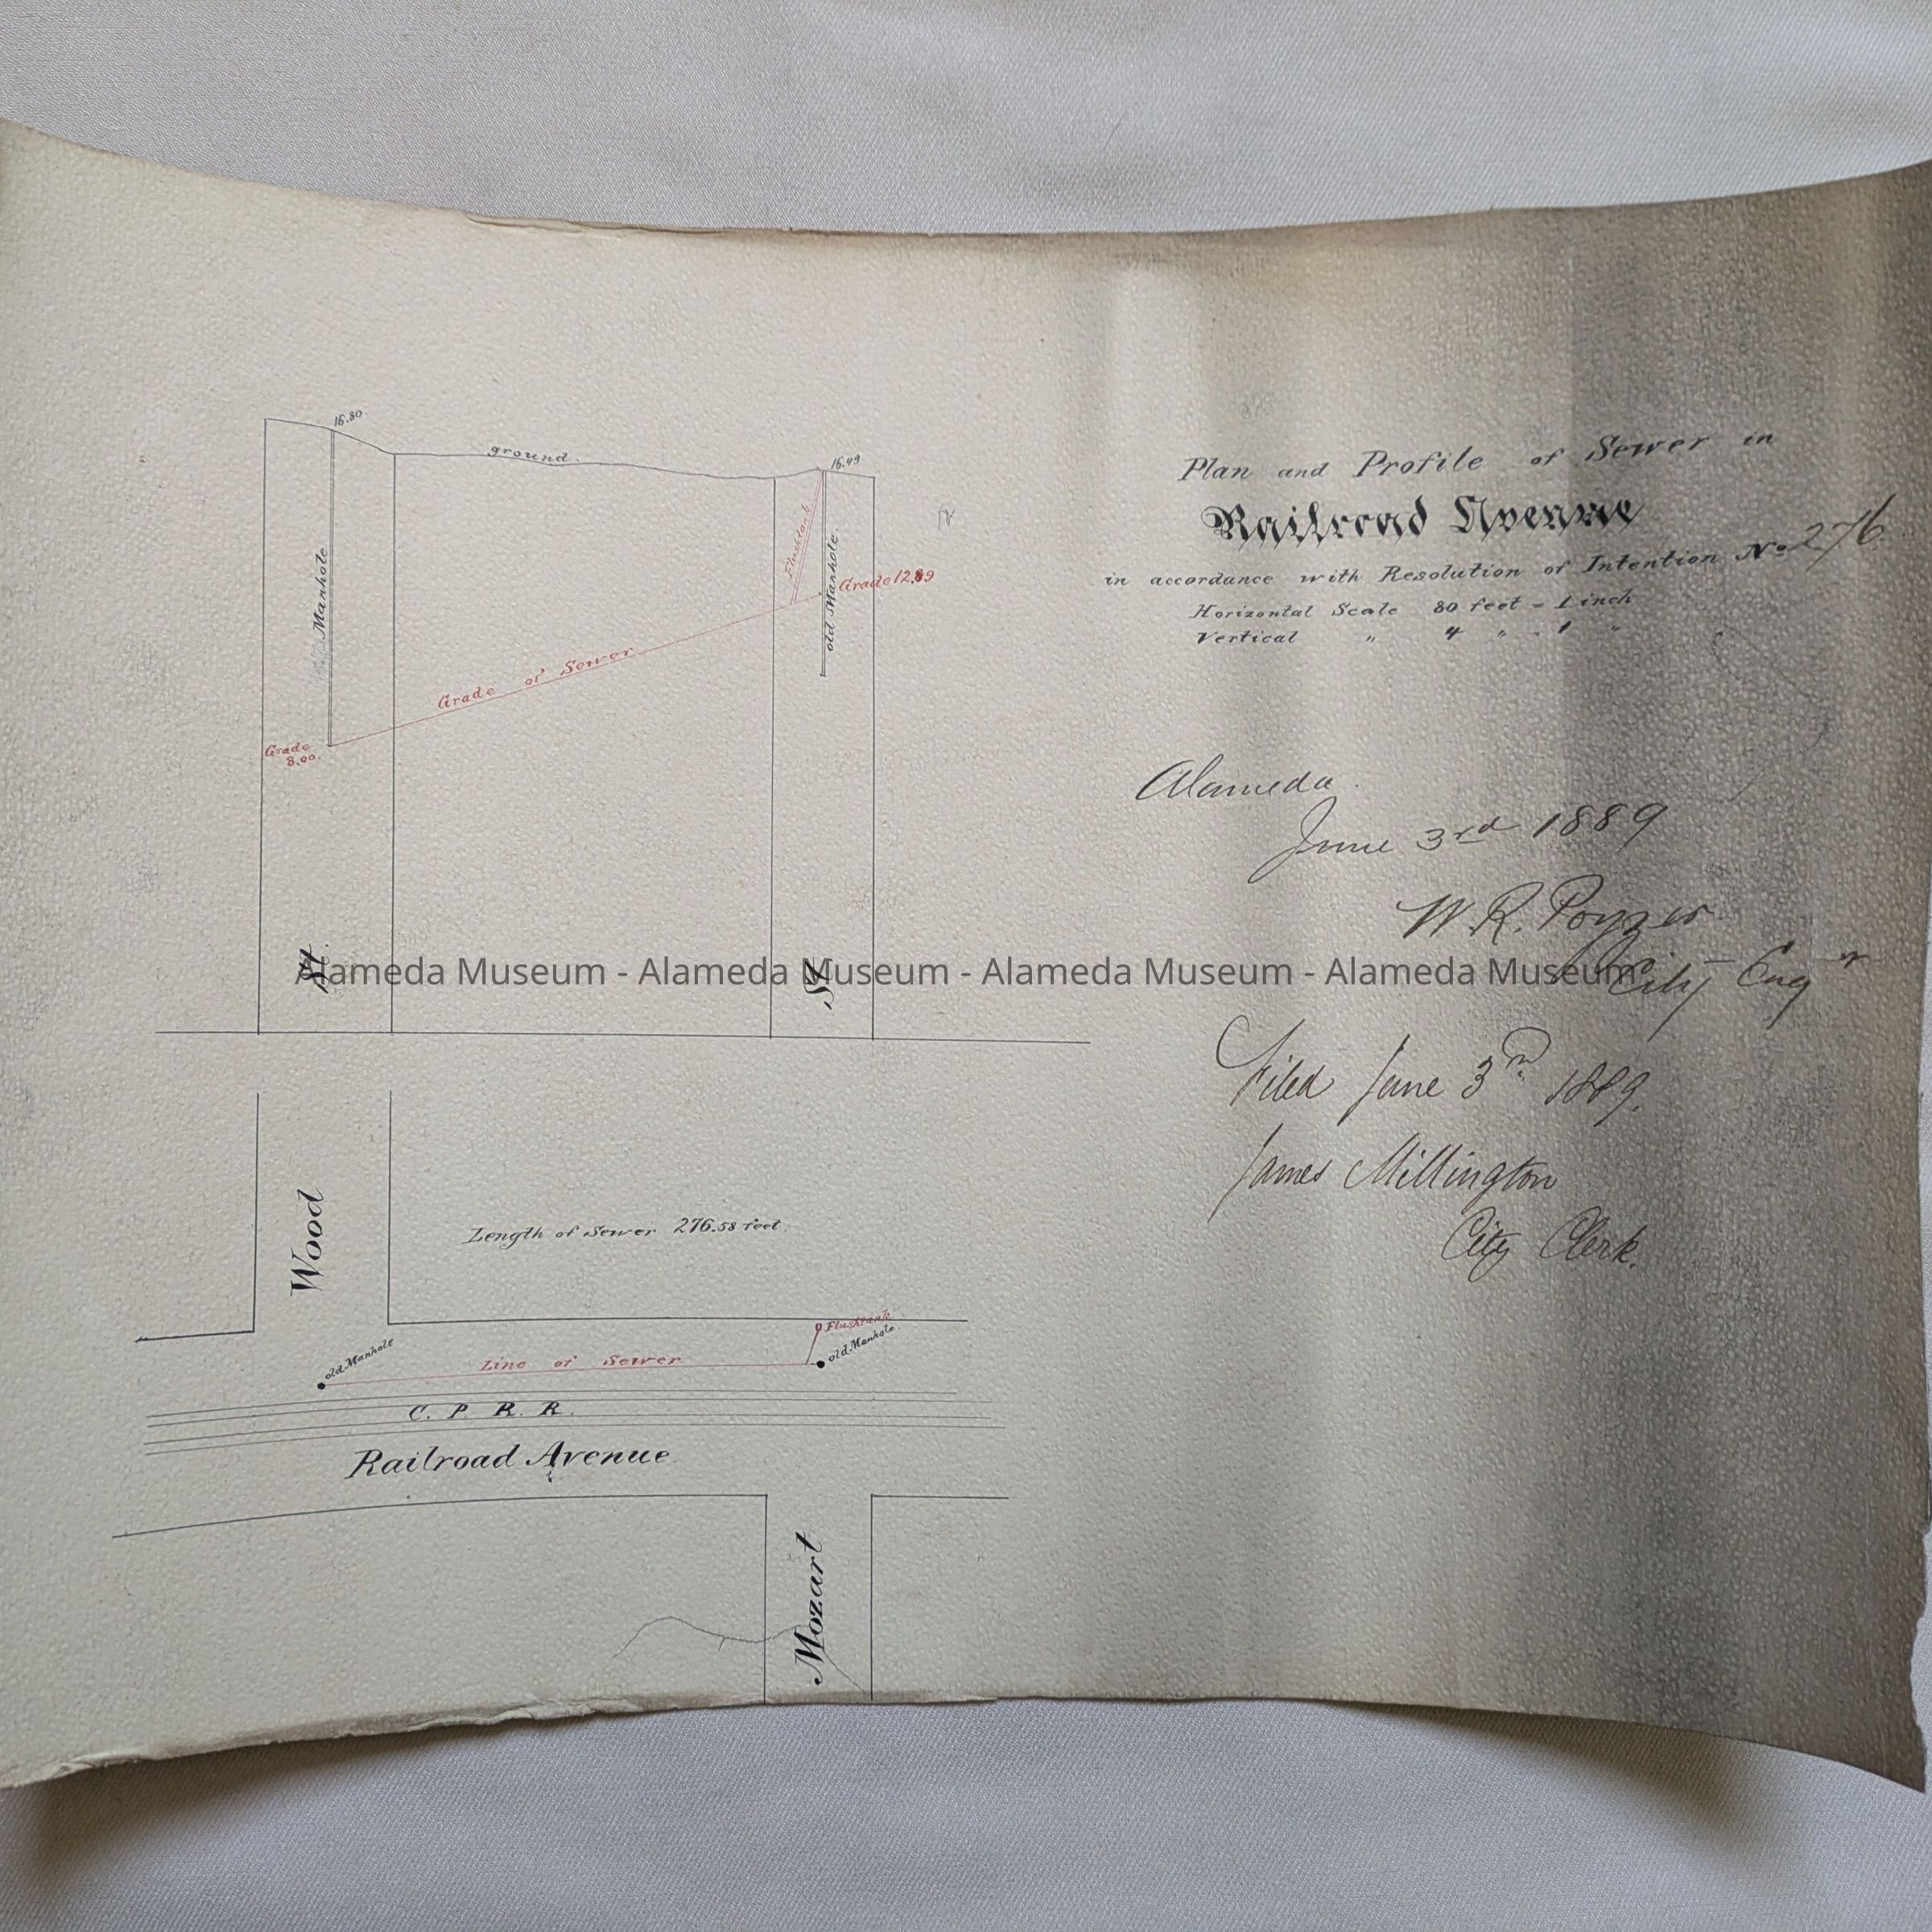 Plan and Profile of Sewer in
Railroad Avenue
in accordance with Resolution of Intention No 276.
Horizontal Scale 80 feet = 1 inch
Vertical " 4 " = 1 "
Alameda
June 3rd 1889
W. R. Poyzer
City Engr
Filed June 3rd 1889.
James Millington
City Clerk.
16.80
ground.
16.49
Manhole
Flushtank
old Manhole.
Grade 12.89
Grade of Sewer
Grade
8.00.
St.
St.
Alameda Museum - Alameda Museum - Alameda Museum - Alameda Museum
Wood
Length of Sewer 276.58 feet.
Flushtank
old Manhole
old Manhole
Line of Sewer
C. P. R. R.
Railroad Avenue
Mozart